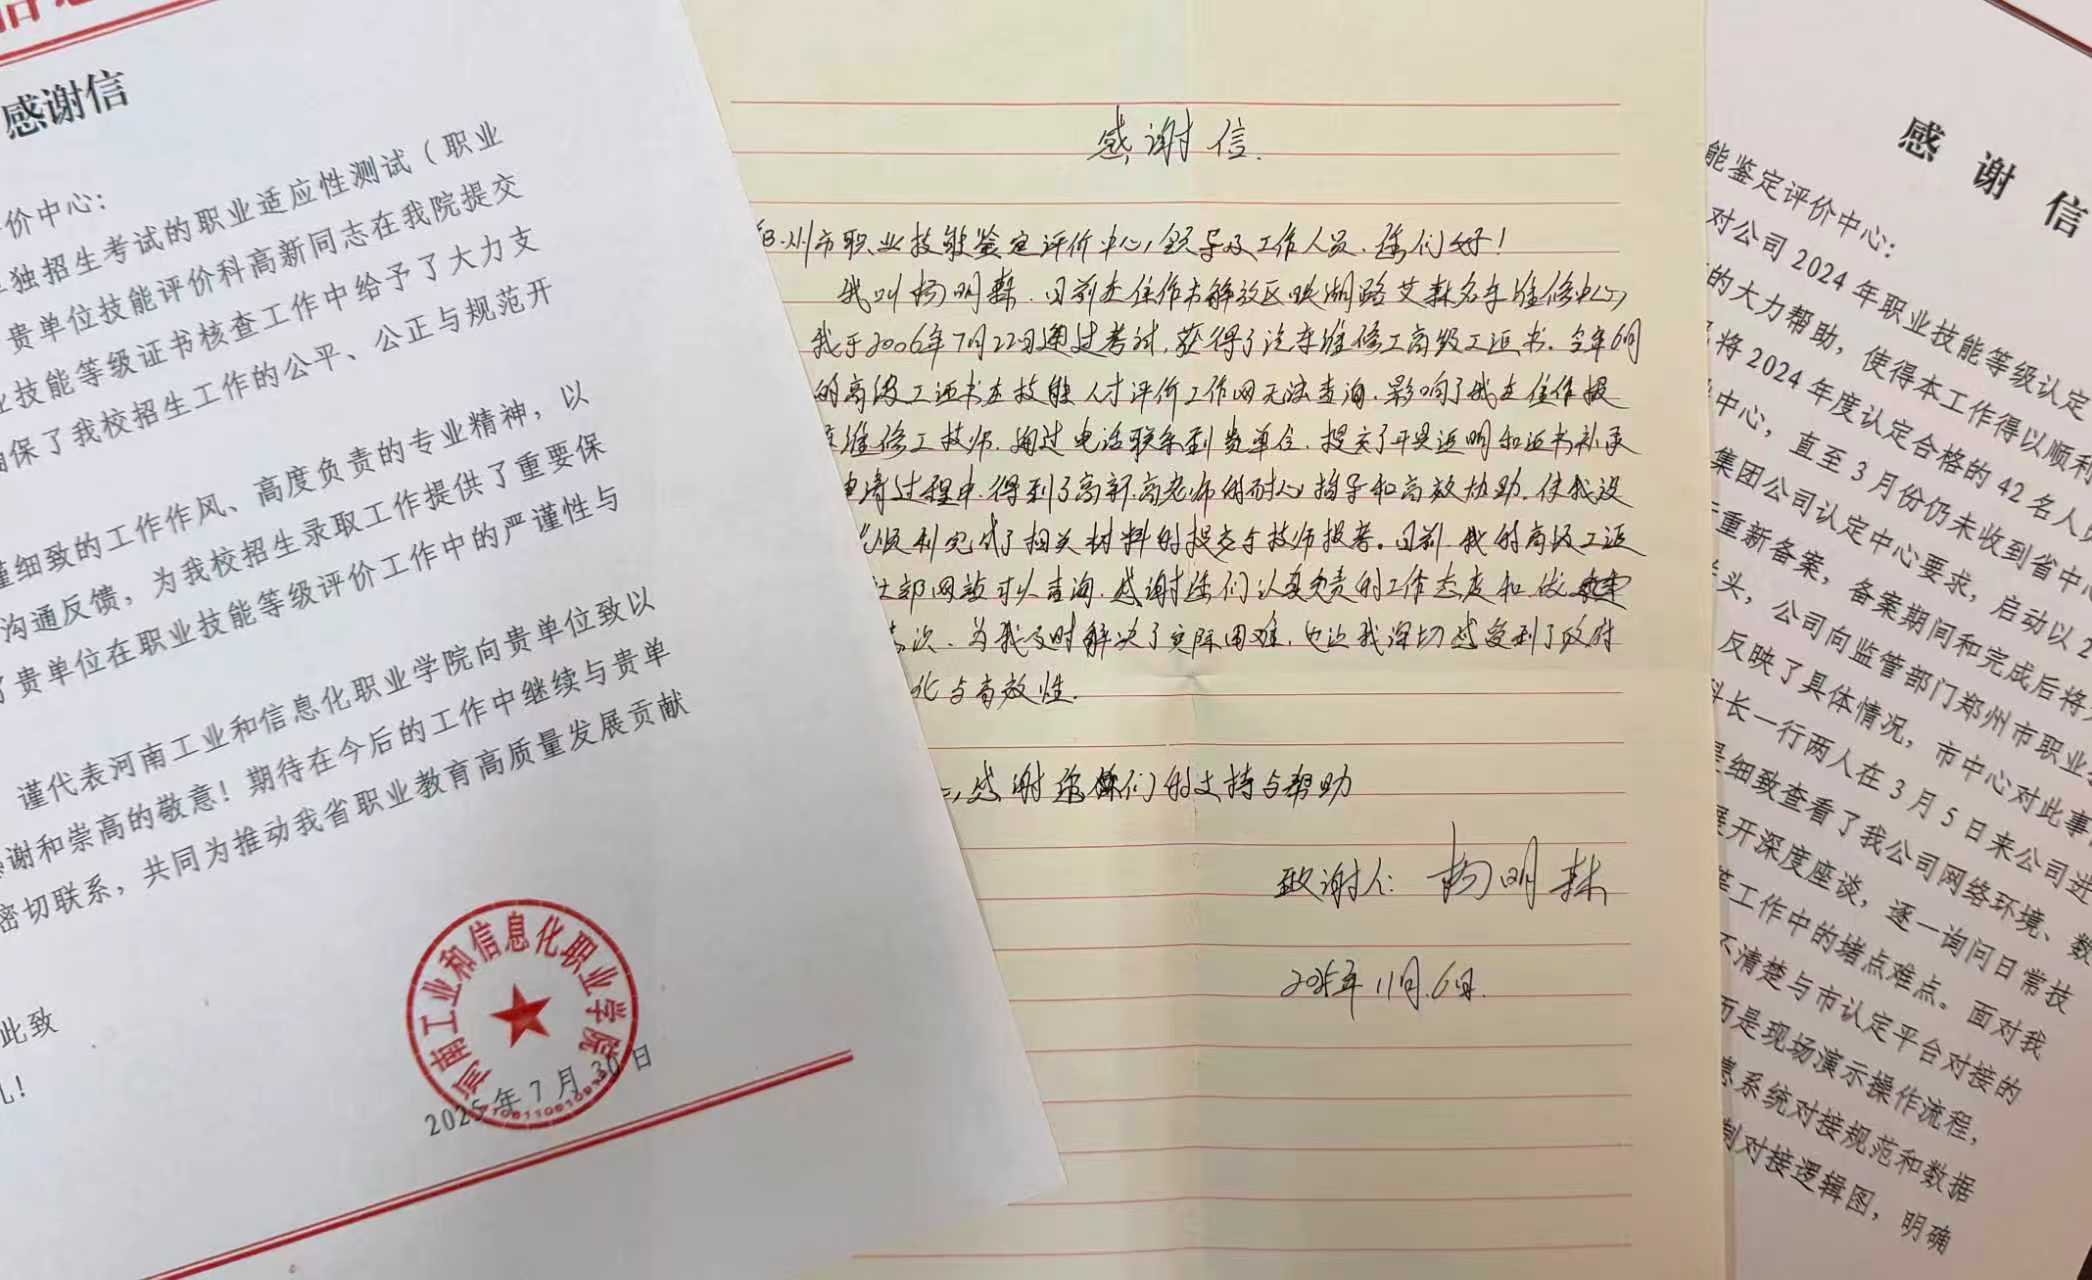 感谢信
价中心：
独招生考试的职业适应性测试（职业
贵单位技能评价科高新同志在我院提交
技能等级证书核查工作中给予了大力支
保了我校招生工作的公平、公正与规范开
细致的工作作风、高度负责的专业精神，以
沟通反馈，为我校招生录取工作提供了重要保
了贵单位在职业技能等级评价工作中的严谨性与
谨代表河南工业和信息化职业学院向贵单位致以
谢和崇高的敬意！期待在今后的工作中继续与贵单
密切联系，共同为推动我省职业教育高质量发展贡献
此致
礼！
河南工业和信息化职业学院
2025年7月30日
感谢信.
州市职业技能鉴定评价中心，领导及工作人员.您们好！
我叫杨明森.目前在焦作市解放区映湖路艾森名车维修中心，
我于2006年7月22日通过考试，获得了汽车维修工高级工证书.今年6月
的高级工证书在技能人才评价工作网无法查询.影响了我在焦作报
维修工技师.通过电话联系到贵单位.提交了开具证明和证书补录
申请过程中.得到了高新.高老师的耐心指导和高效协助.使我没
顺利完成了相关材料的提交与技师报考。目前.我的高级工证
部网站可以查询.感谢您们认真负责的工作态度和
次.为我及时解决了实际困难.也让我深切感受到了政府
化与高效性.
感谢您们的支持与帮助
致谢人：杨明森
2025年11月.6日.
感谢信
能鉴定评价中心：
对公司2024年职业技能等级认定
的大力帮助，使得本工作得以顺利
将2024年度认定合格的42名人员
中心，直至3月份仍未收到省中心
集团公司认定中心要求，启动以2
重新备案，备案期间和完成后将
头，公司向监管部门郑州市职业
反映了具体情况，市中心对此事
科长一行两人在3月5日来公司进
细致查看了我公司网络环境、数
展开深度座谈，逐一询问日常技
工作中的堵点难点。面对我
不清楚与市认定平台对接的
而是现场演示操作流程，
息系统对接规范和数据
制对接逻辑图，明确